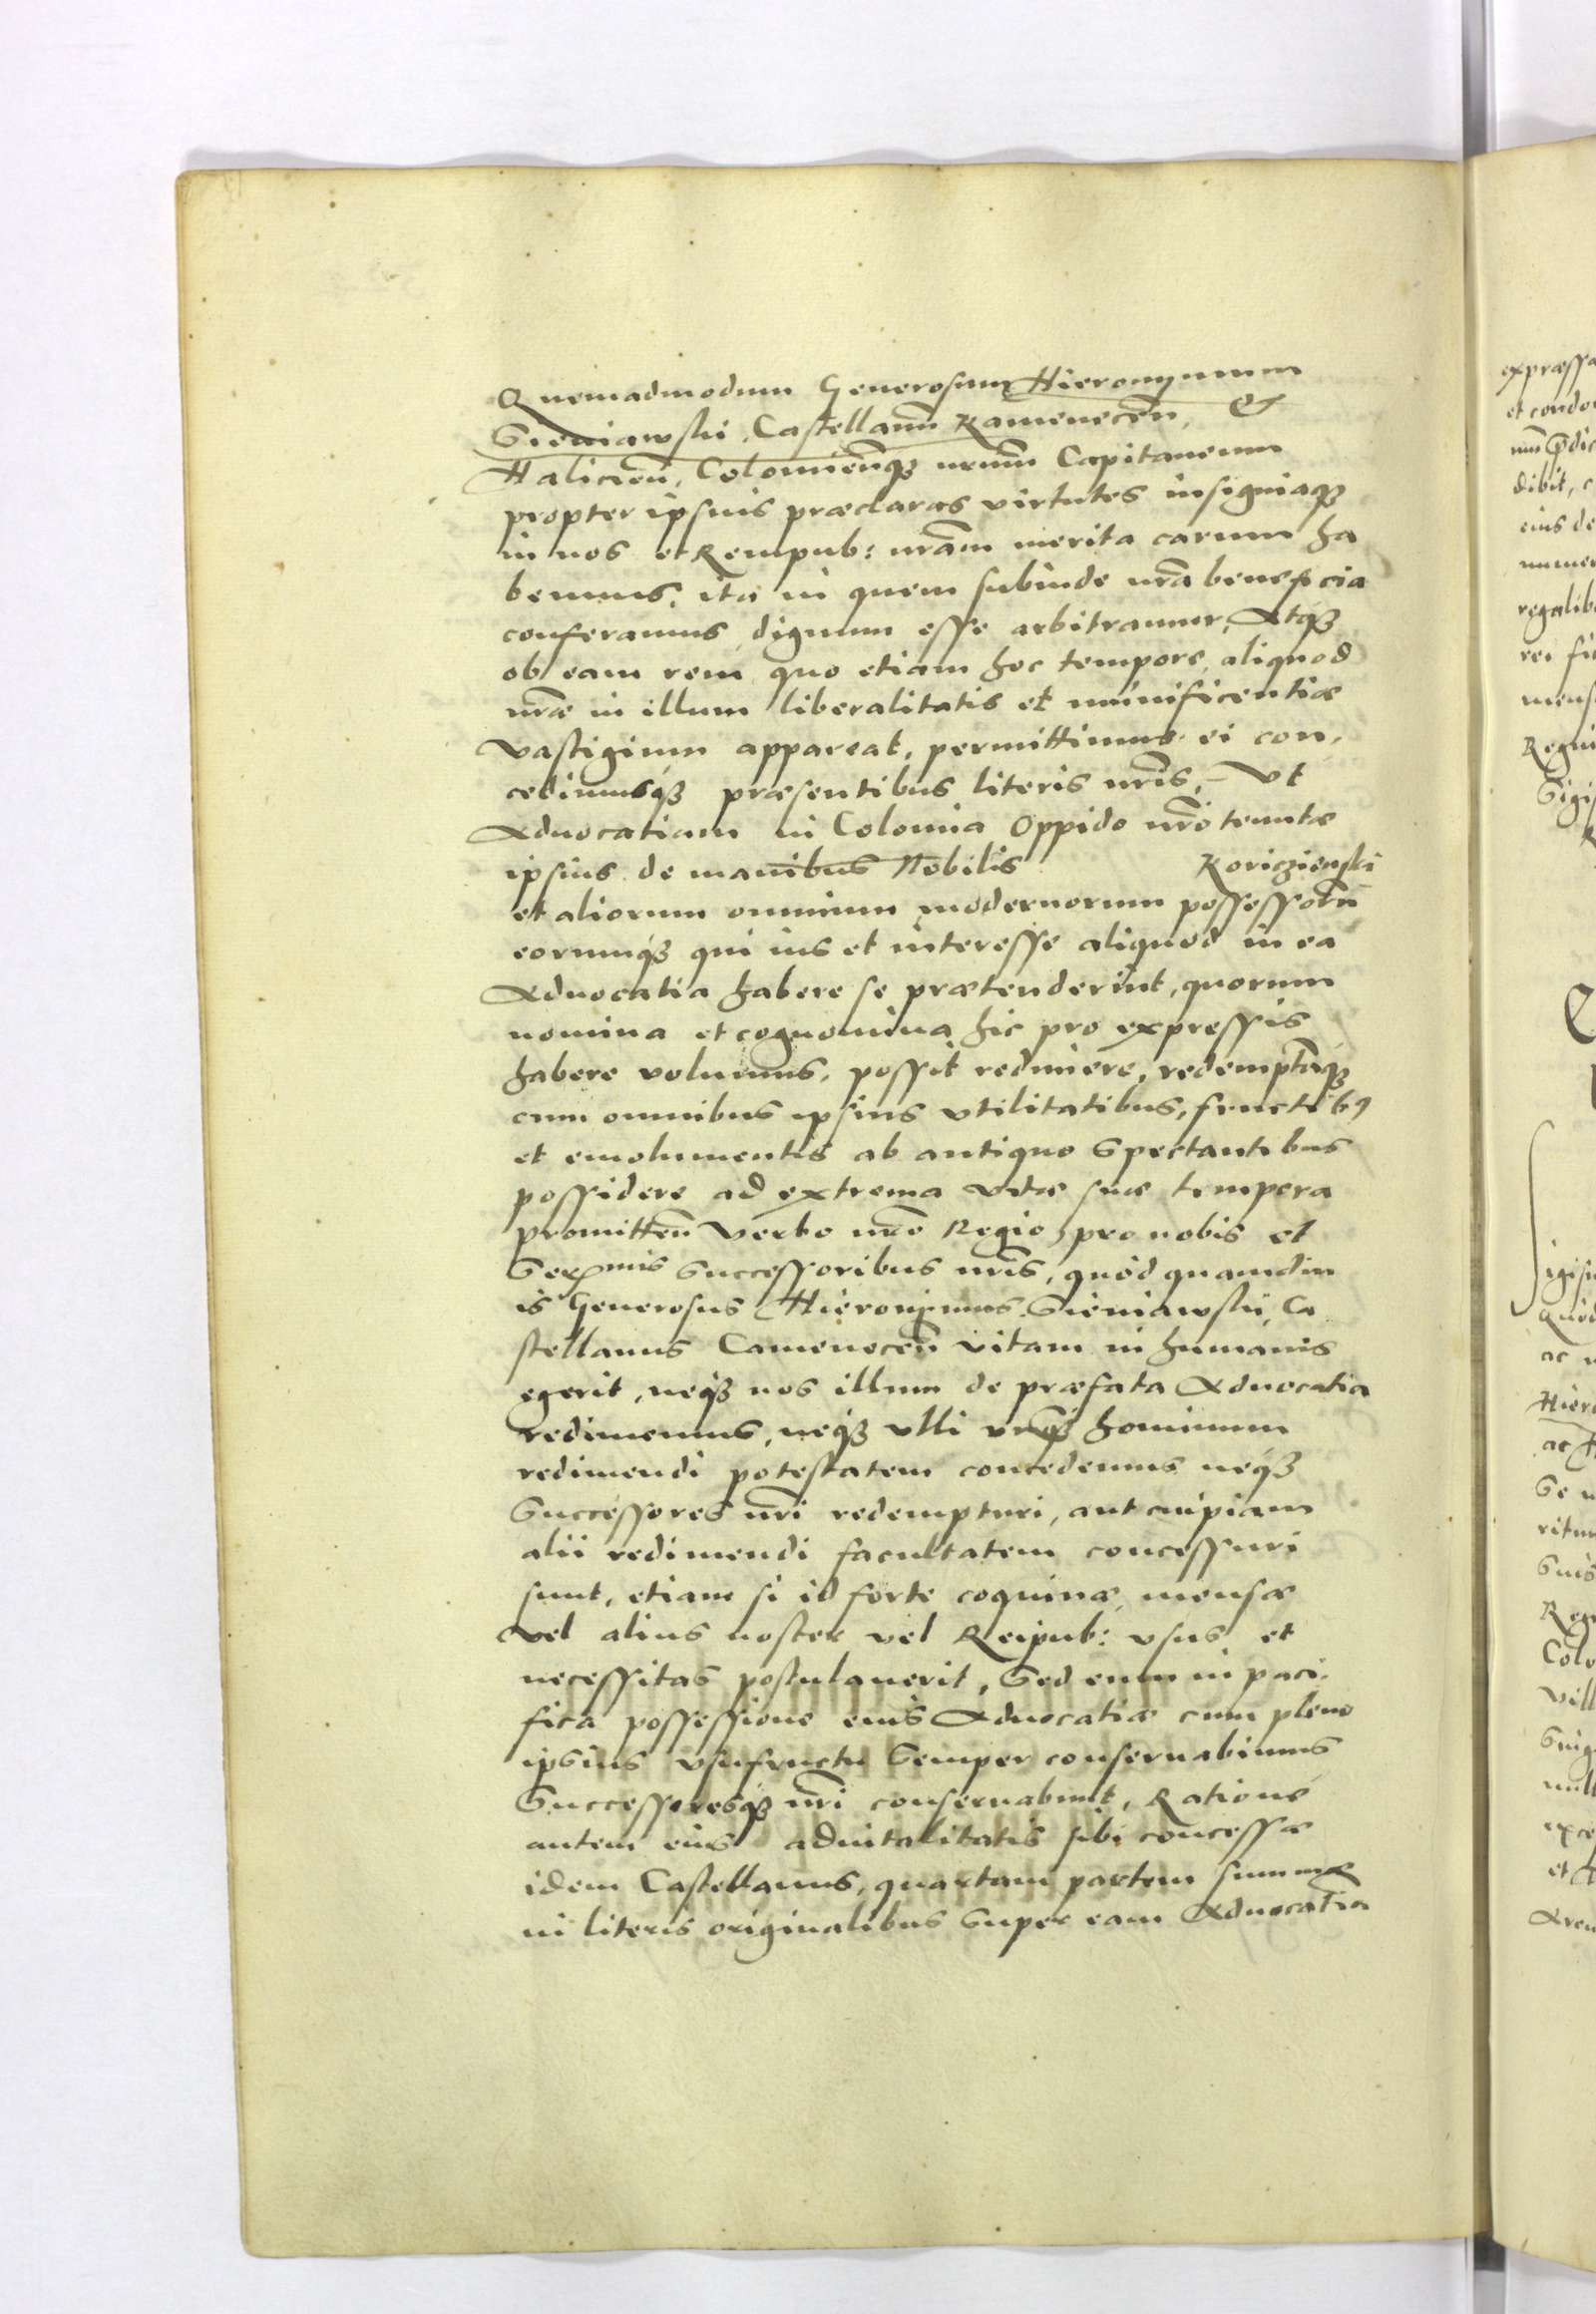 Quemadmodum Generosum Hieronymum
Sieniawski, Castellanũ Kamenecen̄, &
Halicieñ, Colomieñq₃ nrum̃ Capitaneum
propter ipsius præclaras virtutes insigniaq₃
in nos et Rempub: nrãm merita carum ha
bemus, ita in quem subinde nrã beneficia
conferamus dignum esse arbitramur, Atq₃
ob eam rem quo etiam hoc tempore aliquod
nrãe in illum liberalitatis et munificentiæ
vastigium appareat, permittimus ei con,
cedimusq₃ præsentibus literis nrĩs, – Vt
Aduocatiam in Colomia Oppido nrõ tentæ
ipsius de manibus Nobilis Koriczienski
et aliorum omnium modernorum possessorũ
eorumq₃ qui ius et interesse aliquod in ea
Aduocatia habere se prætenderint, quorum
nomina et cognomina hic pro expressis
habere volumus, possit redimere, redemptãq₃
cum omnibus ipsius vtilitatibus, fructibꝰ
et emolumentis ab antiquo Spectantibus
possidere ad extrema vitæ suæ tempora
promitteñ Verbo nrõ Regio, pro nobis et
Serᵐⁱˢ Successoribus nrĩs, quod quamdiu
is Generosus Hieronimus Sieniawski, Ca
stellanus Camenecen̄ vitam in humanis
egerit, neq₃ nos illum de præfata Aduocatia
redimemus, neq₃ vlli vnq₃ hominum
redimendi potestatem concedemus neq₃
Successores nrĩ redempturi, aut cuipiam
alii redimendi facultatem concessuri
sunt, etiam si id forte coquinæ, mensæ
vel alius noster vel Reipub: vsus et
necessitas postulauerit, Sed eum in paci,
fica possessione eius Aduocatiæ cum pleno
ipsius vsufructu Semper conseruabimus
Successoresq₃ nrĩ conseruabunt, Ratione
autem eius aduitalitatis sibi concessæ
idem Castellanus, quartam partem summæ
in literis originalibus Super eam Aduocatia